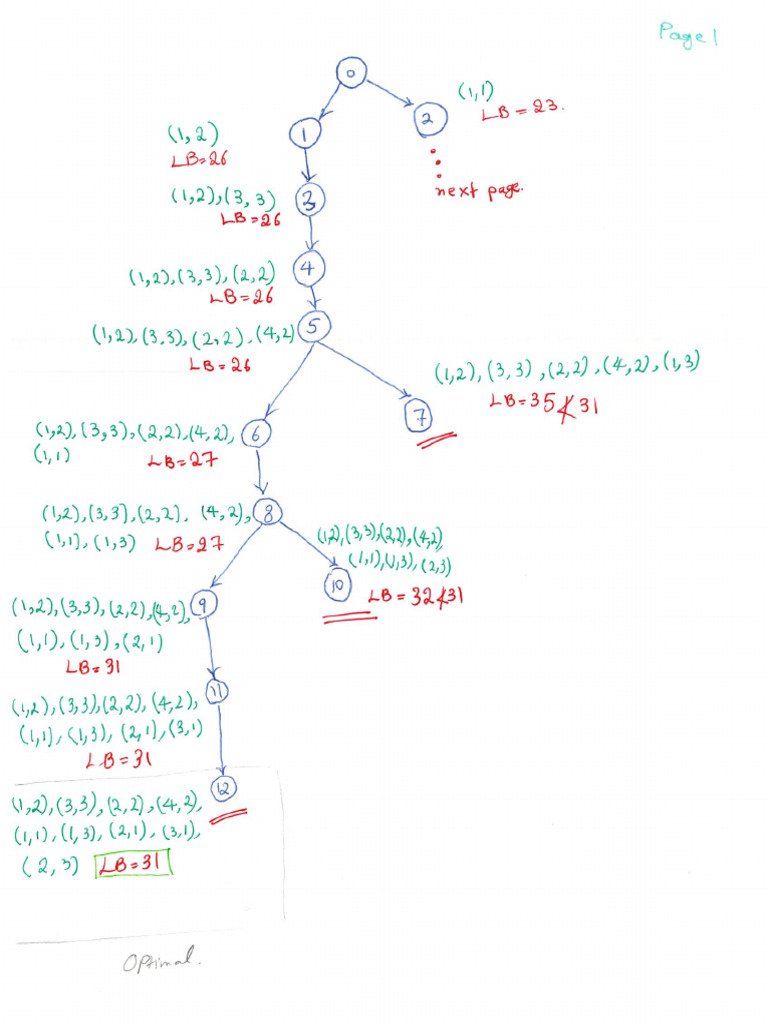 Page 1
0
(1,1)
LB = 23.
2
(1,2)
LB=26
1
next page.
(1,2),(3,3)
LB=26
3
(1,2),(3,3),(2,2)
LB=26
4
(1,2),(3,3),(2,2),(4,2)
LB=26
5
(1,2),(3,3),(2,2),(4,2),(1,3)
LB=35≮31
7
(1,2),(3,3),(2,2),(4,2),
(1,1) LB=27
6
(1,2),(3,3),(2,2),(4,2),
(1,1),(1,3) LB=27
8
(1,2),(3,3),(2,2),(4,2),
(1,1),(1,3),(2,3)
LB = 32≮31
10
(1,2),(3,3),(2,2),(4,2),
(1,1),(1,3),(2,1)
LB=31
9
(1,2),(3,3),(2,2),(4,2),
(1,1),(1,3),(2,1),(3,1)
LB=31
11
(1,2),(3,3),(2,2),(4,2),
(1,1),(1,3),(2,1),(3,1),
(2,3) LB=31
12
Optimal.